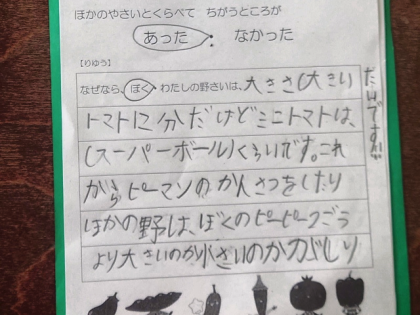 ほかのやさいとくらべて ちがうところが
あった なかった
【りゆう】
なぜなら、ぼく わたしの野さいは、大きさ(大きい
トマト)に分だけどミニトマトは、
(スーパーボール)くらいです。これ
からピーマンのかんさつをしたり
ほかの野は、ぼくのピーピーつごう
より大きいのか小さいのか力がしり
たいです。